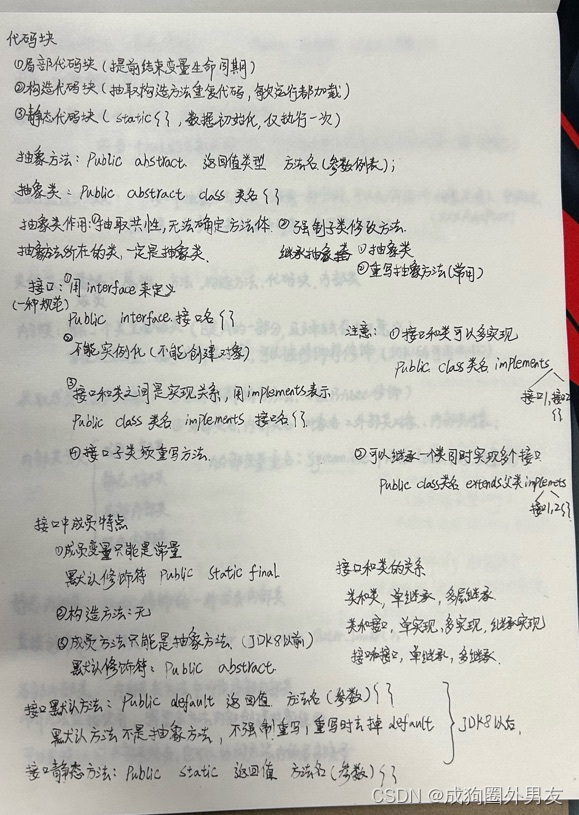 代码块
①局部代码块(提前结束变量生命周期)
②构造代码块(抽取构造方法重复代码,每次运行都加载)
③静态代码块( static{ },数据初始化,仅执行一次)
抽象方法:Public abstract 返回值类型 方法名(参数列表);
抽象类:Public abstract class 类名{ }
抽象类作用:①抽取共性,无法确定方法体 ②强制子类修改方法.
抽象方法所在的类,一定是抽象类. 继承抽象类 ①抽象类
②重写抽象方法(常用)
接口:①用interface来定义
(一种规范)
Public interface 接口名{ }
②不能实例化(不能创建对象)
③接口和类之间是实现关系,用implements表示
Public class 类名 implements 接口名{ }.
④接口子类须重写方法.
注意: ①接口和类可以多实现
Public class 类名 implements
接口1,接口2
{ }
②可以继承一个类同时实现多个接口
Public class类名 extends父类implemets
接口1,2{ }
接口中成员特点
①成员变量只能是常量
默认修饰符 Public static final
②构造方法:无
③成员方法只能是抽象方法.(JDK8以前)
默认修饰符:Public abstract
接口和类的关系
类和类,单继承,多层继承.
类和接口,单实现,多实现,继承实现
接口和接口,单继承,多继承.
接口默认方法:Public default 返回值 方法名(参数){ }
默认方法不是抽象方法,不强制重写,重写时去掉default
JDK8以后.
接口静态方法:Public static 返回值 方法名(参数){ }
CSDN @成狗圈外男友